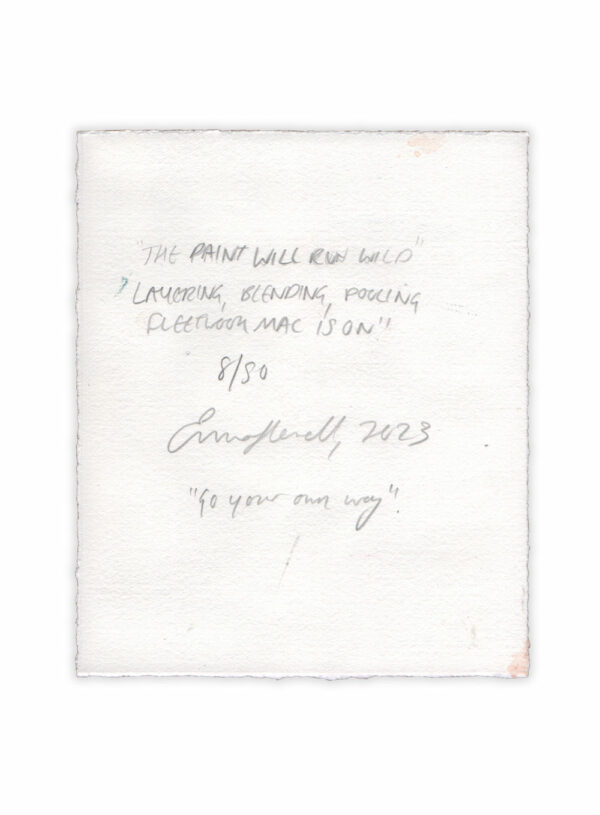 "THE PAINT WILL RUN WILD"
"LAYERING, BLENDING, POOLING
FLEETWOOD MAC IS ON"
8/50
2023
"Go your own way".